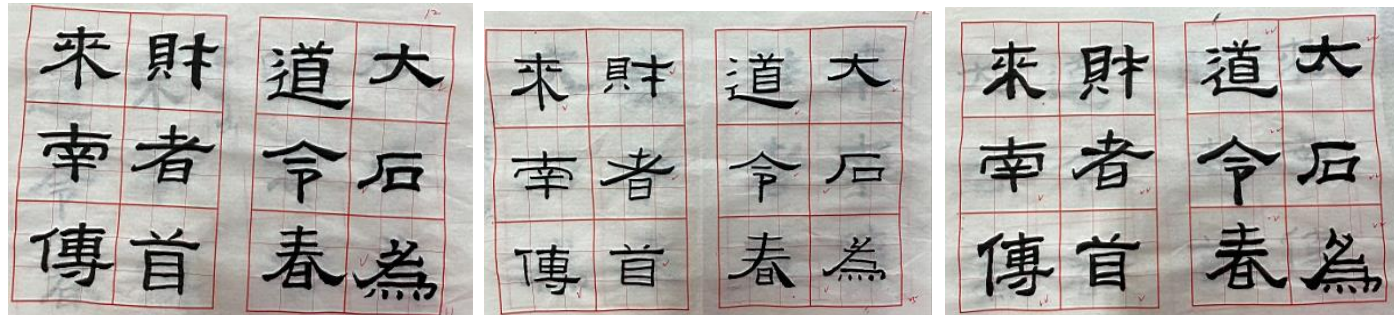 大石為
道令春
財者首
來南傳
大石為
道令春
財者首
來南傳
大石為
道令春
財者首
來南傳